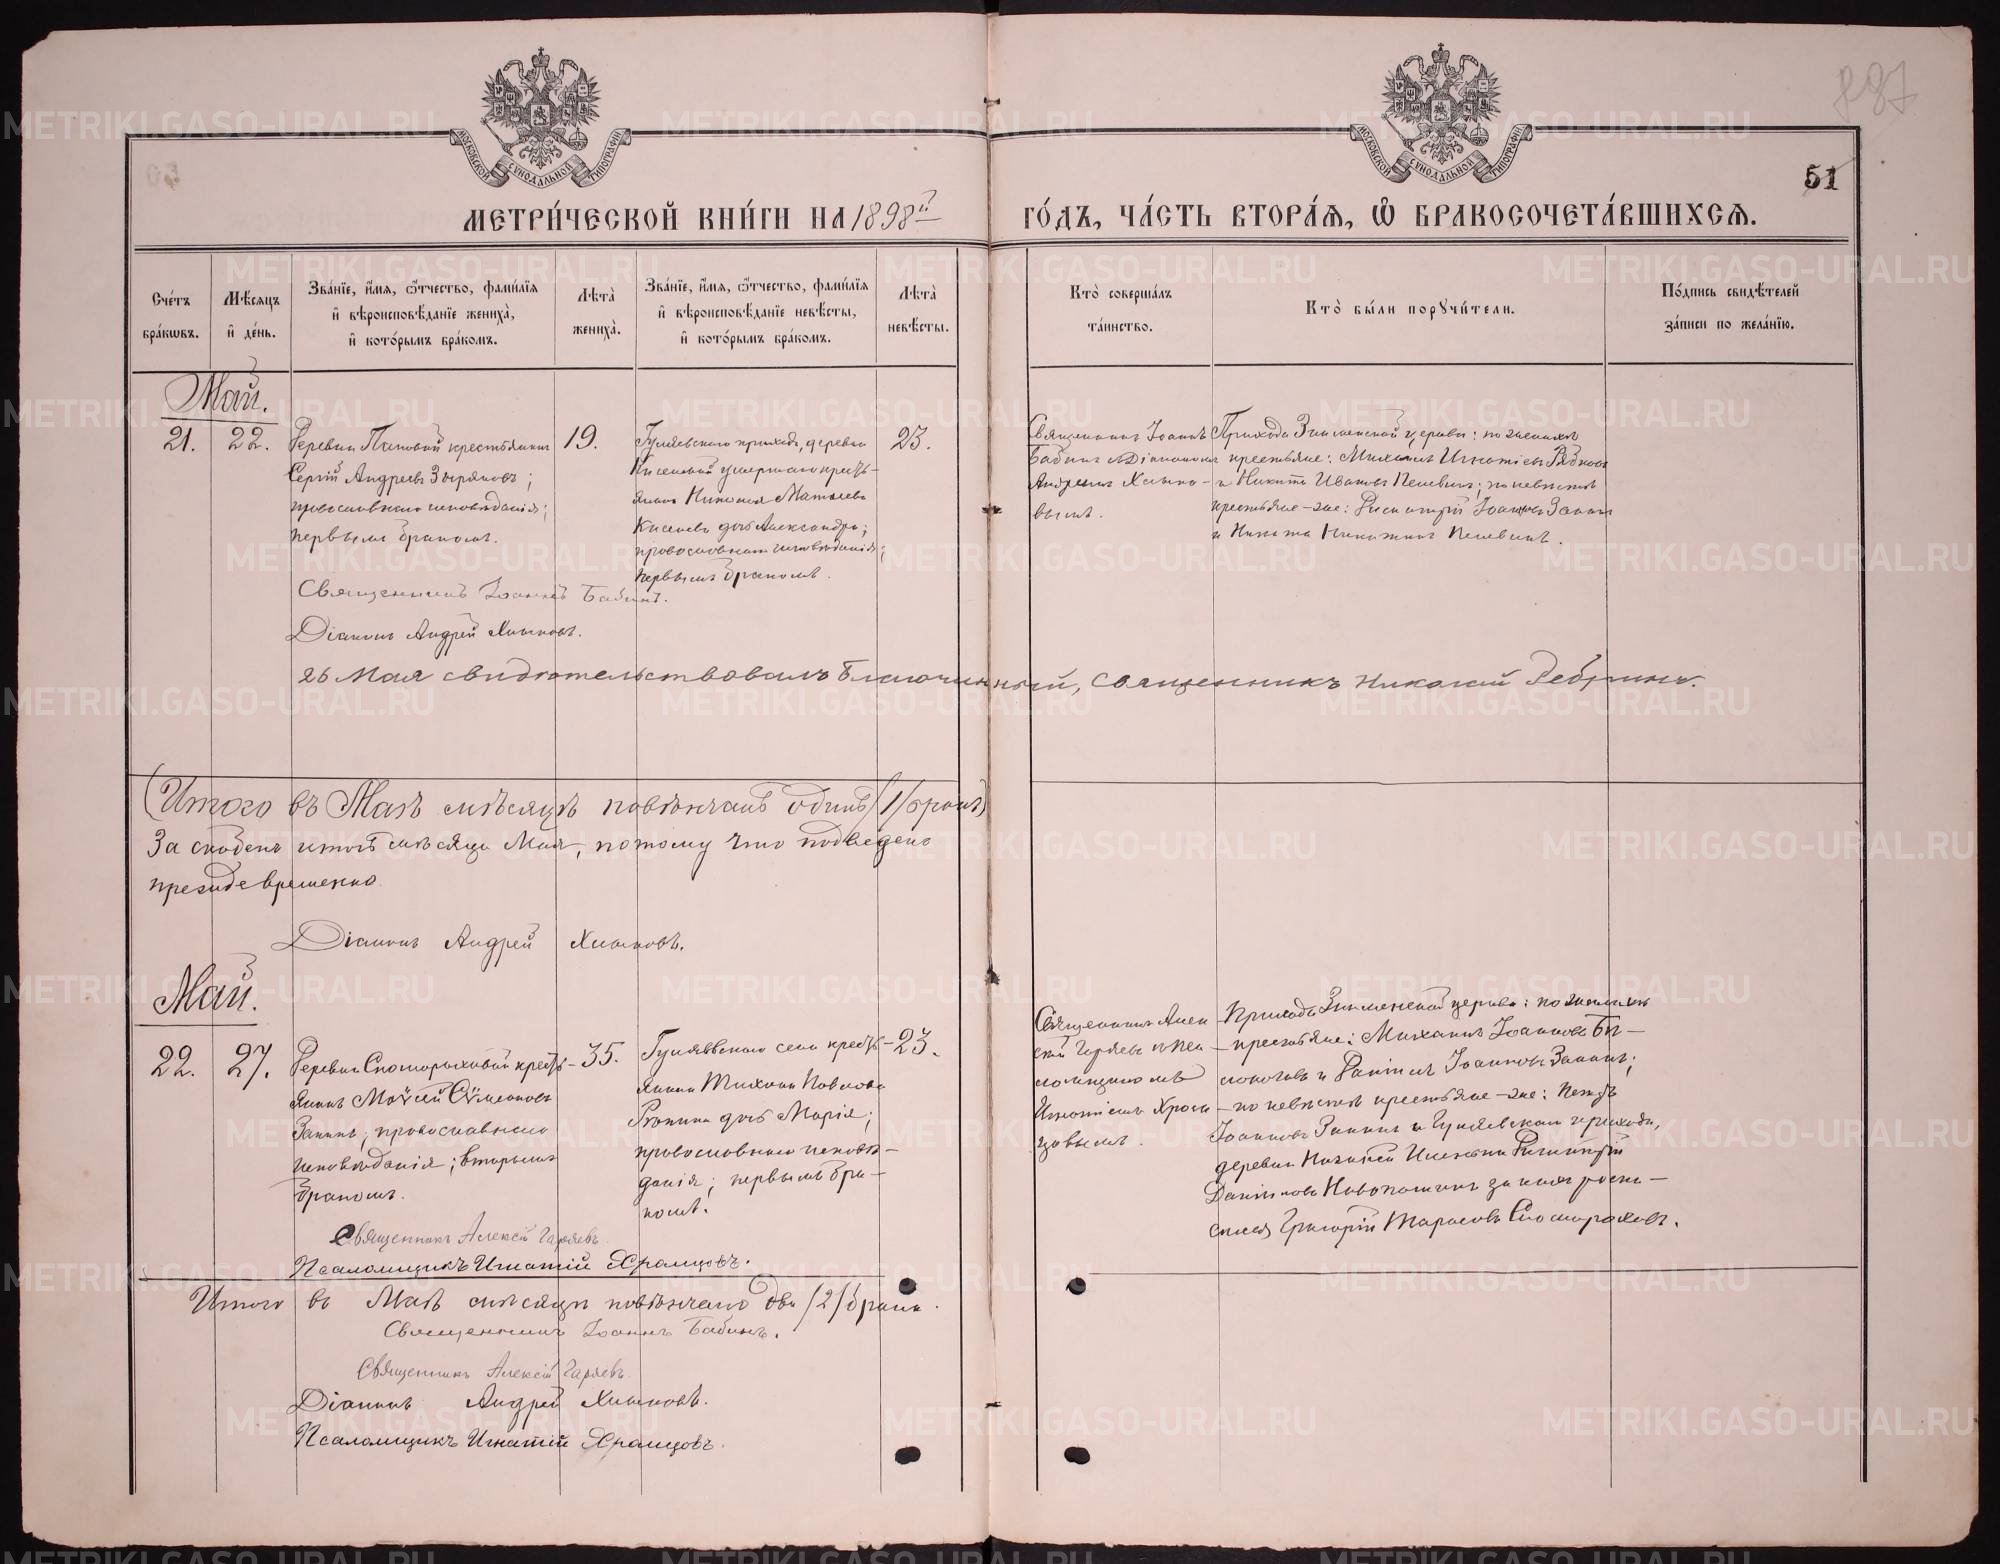 МОСКОВСКОЙ СѴНОДАЛЬНОЙ ТИПОГРАФІИ
МОСКОВСКОЙ СѴНОДАЛЬНОЙ ТИПОГРАФІИ
51
МЕТРИ́ЧЕСКОЙ КНИ́ГИ НА 1898й
ГО́ДЪ, ЧА́СТЬ ВТОРА́Ѧ, Ѽ БРАКОСОЧЕТА́ВШИХСѦ.
Сче́тъ бра́кωвъ.
Мѣ́сяцъ и҆ де́нь.
Зва́нїе, и҆́мя, ѻ҆́тчество, фами́лїя и҆ вѣроисповѣ́данїе жениха̀, и҆ кото́рымъ бра́комъ.
Лѣ́та̀ жениха̀.
Зва́нїе, и҆́мя, ѻ҆́тчество, фами́лїя и҆ вѣроисповѣ́данїе невѣ́сты, и҆ кото́рымъ бра́комъ.
Лѣ́та̀ невѣ́сты.
Кто̀ соверша́лъ та́инство.
Кто̀ бы́ли порꙋчи́тели.
По́дпись свидѣ́телей за́писи по жела́нїю.
Май.
21.
22.
крестьянинъ
Сергій Андреевъ Зыряновъ;
православнаго исповѣданія;
первымъ бракомъ.
19.
Гуляевскаго прихода, деревни
умершаго кресть-
янина Николая Матвѣева
дочь Александра;
православнаго исповѣданія;
первымъ бракомъ.
23.
Священникъ Іоаннъ
Бабинъ и Діакономъ
Андреемъ
вымъ.
Прихода Знаменской церкви: по женихѣ
крестьяне: Михаилъ Игнатіевъ
и Никита Ивановъ Пешвинъ; по невѣстѣ
крестьяне-же: Димитрій Іоанновъ Занинъ
и Никита Никитинъ
Священникъ Іоаннъ Бабинъ.
Діаконъ Андрей
26 Мая свидѣтельствовалъ Благочинный, священникъ Николай
(Итого въ Маѣ мѣсяцѣ повѣнчанъ одинъ /1/ бракъ)
итогъ мѣсяца Мая, потому что подведено
преждевременно
Діаконъ Андрей
Май.
22.
27.
Деревни Скомороховой кресть-
янинъ Моѵсей Сѵмеоновъ
Занинъ; православнаго
исповѣданія; вторымъ
бракомъ.
35.
Гуляевскаго села кресть-
янина Тихона Павлова
дочь Марія;
православнаго исповѣ-
данія; первымъ бра-
комъ.
23.
Священникъ Алек-
сій Гаряевъ и пса-
ломщикомъ
Игнатіемъ Храм-
цовымъ.
Прихода Знаменской церкви: по женихѣ
крестьяне: Михаилъ Іоанновъ Бѣ-
и Даніилъ Іоанновъ Занинъ;
по невѣстѣ крестьяне-же: Петръ
Іоанновъ Занинъ и Гуляевскаго прихода,
деревни Димитрій
Даніиловъ за него распи-
сался Григорій Тарасовъ Скомороховъ.
Священникъ Алексій Гаряевъ.
Псаломщикъ Игнатій Храмцовъ.
Итого въ Маѣ мѣсяцѣ повѣнчано два /2/ брака.
Священникъ Іоаннъ Бабинъ.
Священникъ Алексій Гаряевъ.
Діаконъ Андрей
Псаломщикъ Игнатій Храмцовъ.
METRIKI.GASO-URAL.RU